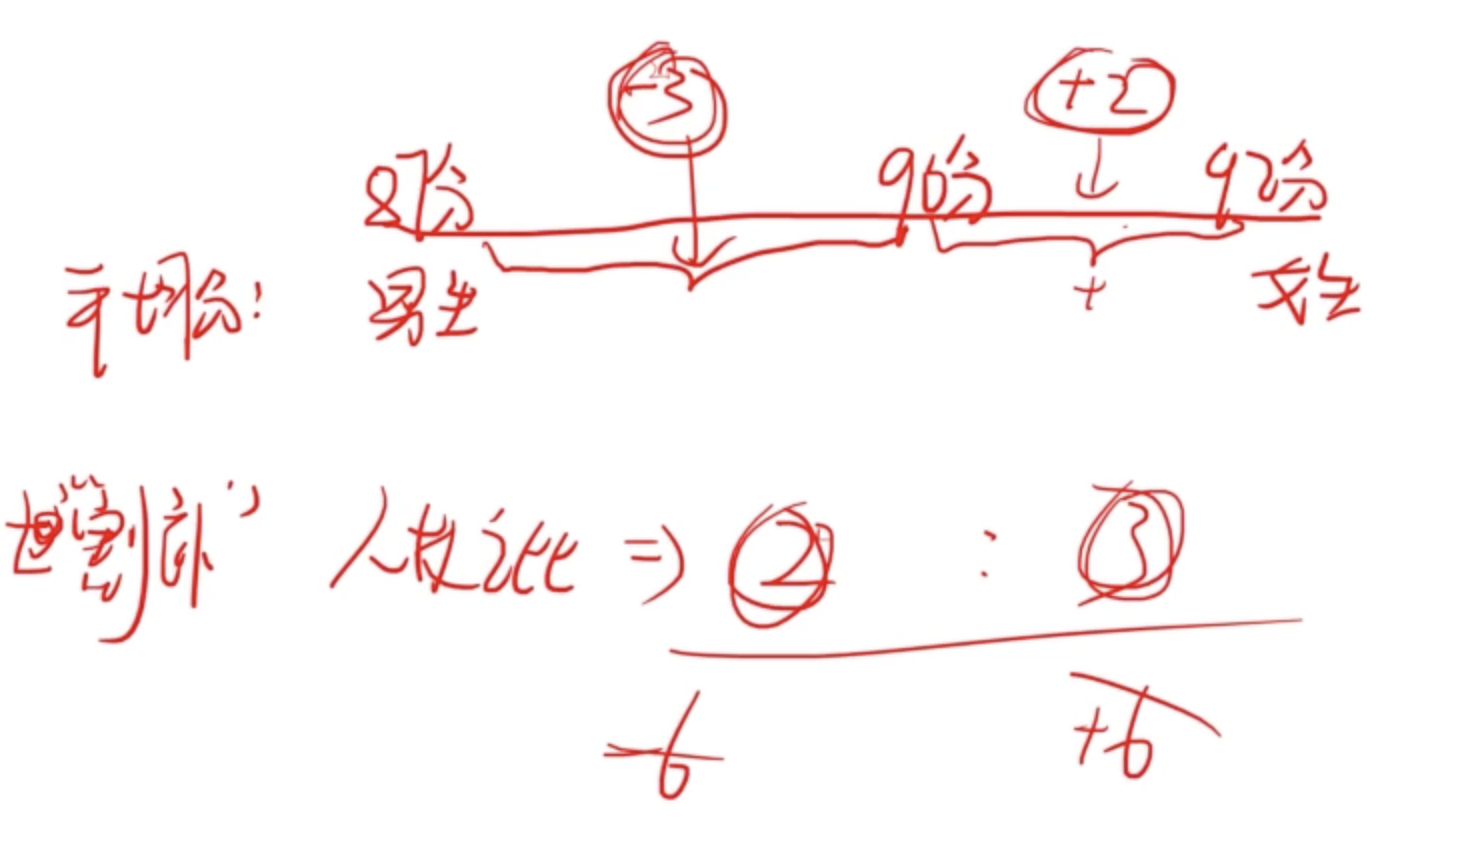 -3 +2
87分 90分 92分
平均分: 男生 + 女生
"割补" 人数之比 => 2 : 3
-6 +6